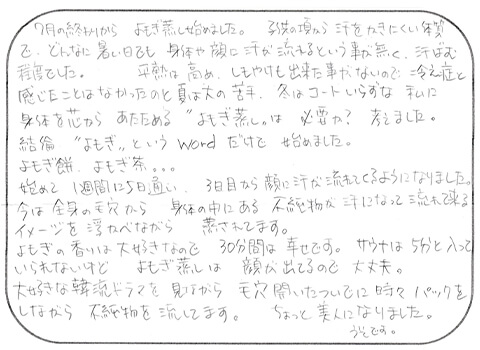 7月の終わりから よもぎ蒸し始めました。 子供の頃から 汗をかきにくい体質
で、どんなに暑い日でも 身体や顔に汗が流れるという事が無く、汗ばむ
程度でした。 平熱は高め、しもやけも出来た事がないので 冷え症と
感じたことはなかったのと夏は大の苦手、冬はコートいらずな 私に
身体を芯から あたためる “よもぎ蒸し„は 必要か? 考えました。
結論 “よもぎ„という Word だけで 始めました。
よもぎ餅、よもぎ茶・・・
始めて 1週間に5日通い、 3日目から 顔に汗が流れてくるようになりました。
今は 全身の毛穴から 身体の中にある 不純物が 汗になって 流れて来る
イメージを 浮かべながら 蒸されてます。
よもぎの香りは大好きなので 30分間は 幸せです。 サウナは 5分と入って
いられないけど よもぎ蒸しは 顔が出てるので 大丈夫。
大好きな韓流ドラマを 見ながら 毛穴開いたついでに 時々 パックを
しながら 不純物を 流してます。 ちょっと 美人になりました。
うそです。